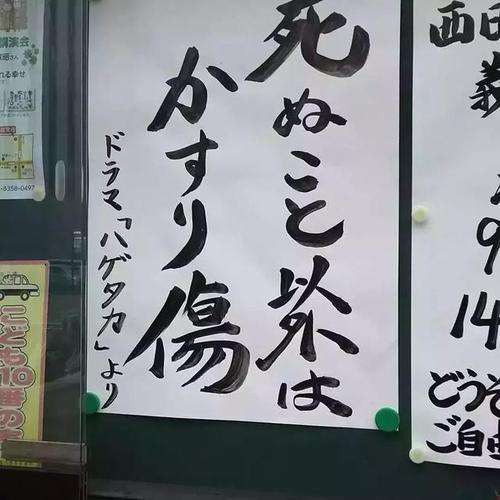 死ぬこと以外は
かすり傷
ドラマ「ハゲタカ」より
西田
義
9
14
どうぞ
ご自由
講演会
れる幸せ
8358-0497
こども110番の